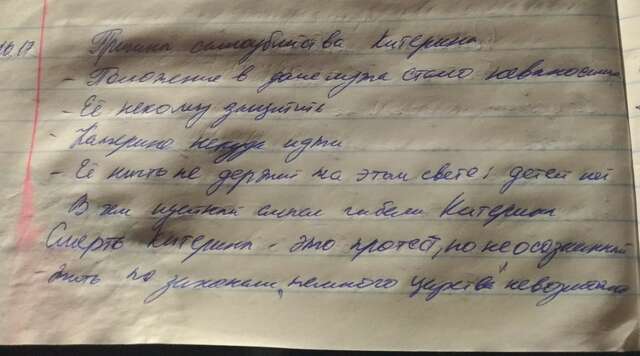 16.17 Причина самоубийства Катерины
- Положение в доме мужа стало невыносимым
- Её некому защитить
- Катерине некуда идти
- Её ничто не держит на этом свете, детей нет
В чем смысл гибели Катерины
Смерть Катерины - это протест, но неосознанный
- жить по законам "темного царства" невозможно